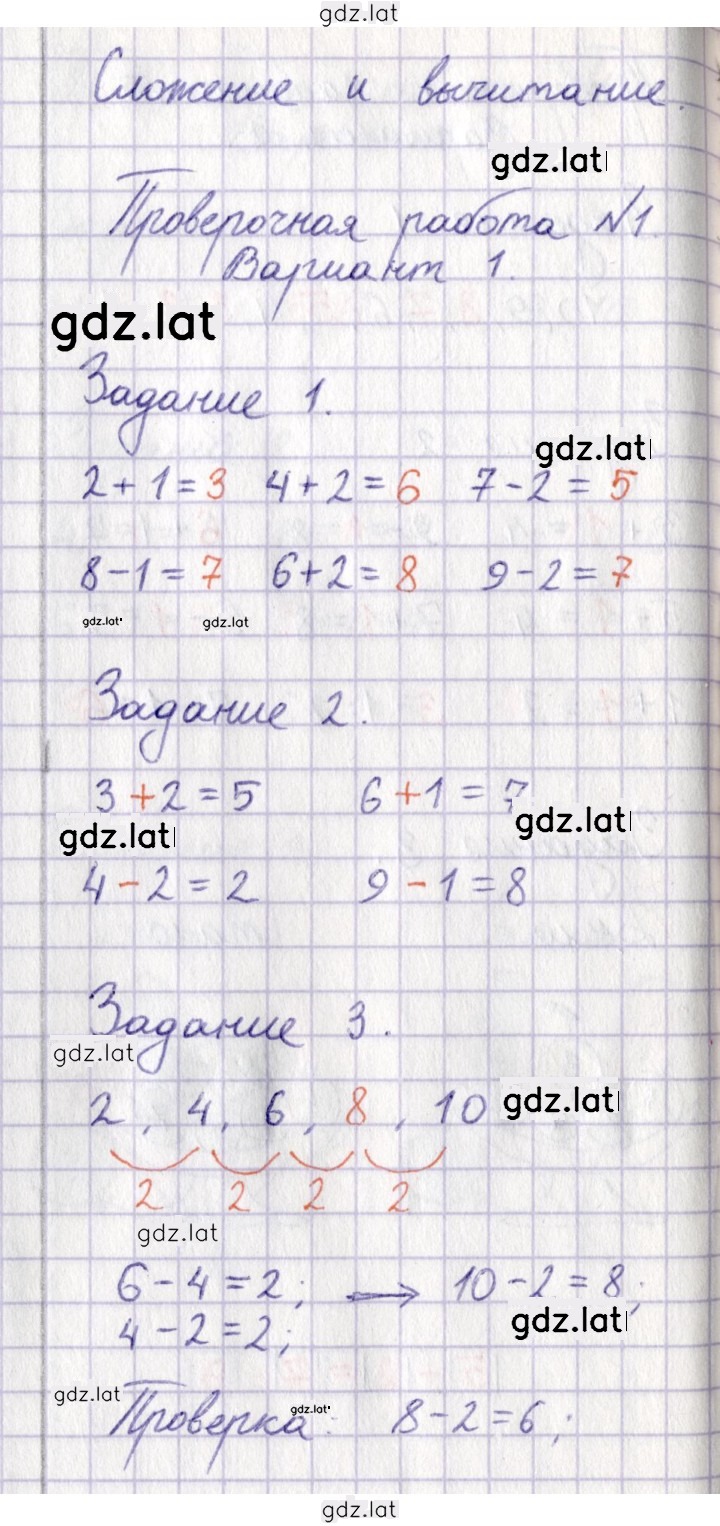 gdz.lat
Сложение и вычитание.
gdz.lat
Проверочная работа №1.
Вариант 1.
gdz.lat
Задание 1.
gdz.lat
2+1=3 4+2=6 7-2=5
8-1=7 6+2=8 9-2=7
gdz.lat gdz.lat
Задание 2.
3+2=5 6+1=7
gdz.lat gdz.lat
4-2=2 9-1=8
Задание 3.
gdz.lat
2, 4, 6, 8, 10 gdz.lat
2 2 2 2
gdz.lat
6-4=2; → 10-2=8;
4-2=2; gdz.lat
gdz.lat gdz.lat
Проверка: 8-2=6;
gdz.lat